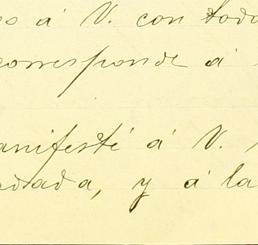 os á V. con todo
corresponde á
anifesté á V.
dada, y á la